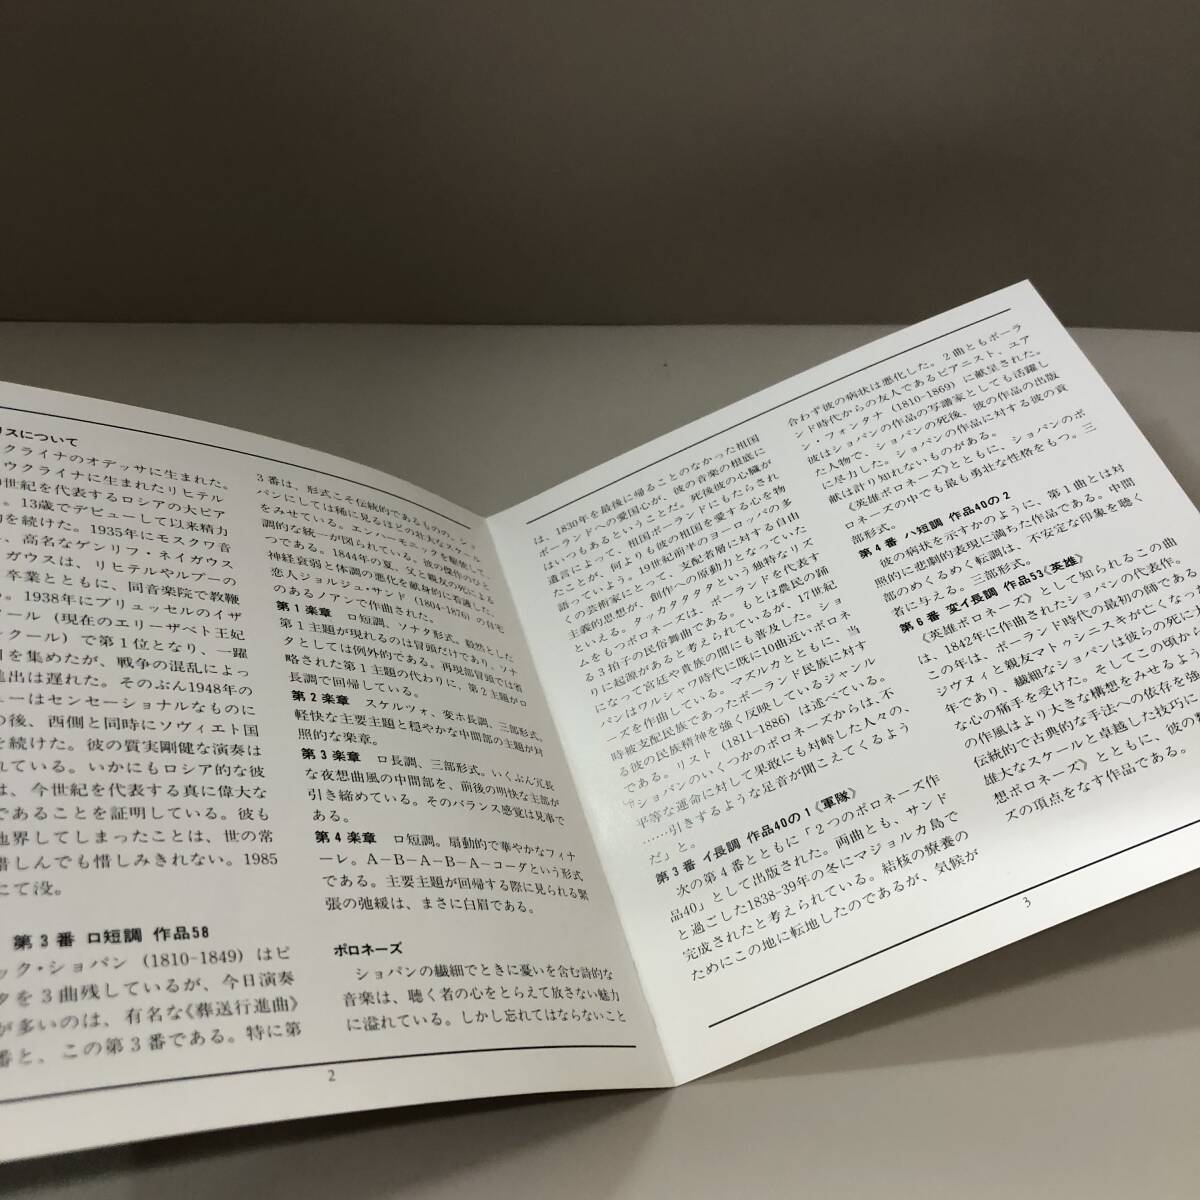 リスについて
クライナのオデッサに生まれた。
ウクライナに生まれたリヒテル
世紀を代表するロシアの大ピア
。13歳でデビューして以来精力
を続けた。1935年にモスクワ音
、高名なゲンリフ・ネイガウス
ガウスは、リヒテルやルプーの
卒業とともに、同音楽院で教鞭
。1938年にブリュッセルのイザ
ール (現在のエリーザベト王妃
クール) で第1位となり、一躍
目を集めたが、戦争の混乱によっ
進出は遅れた。そのぶん1948年の
ューはセンセーショナルなものに
の後、西側と同時にソヴィエト国
を続けた。彼の質実剛健な演奏は
れている。いかにもロシア的な彼
は、今世紀を代表する真に偉大な
であることを証明している。彼も
他界してしまったことは、世の常
惜しんでも惜しみきれない。1985
にて没。
第3番 ロ短調 作品58
ック・ショパン (1810-1849) はピ
タを3曲残しているが、今日演奏
が多いのは、有名な《葬送行進曲》
番と、この第3番である。特に第
3番は、形式こそ伝統的であるものの、ショ
パンにしては稀に見るほどの壮大なスケール
をみせている。エンハーモニックを駆使した
調的な統一が図られている。彼の傑作のひと
つである。1844年の夏、父と親友の死による
神経衰弱と体調の悪化を献身的に看護した
恋人ジョルジュ・サンド (1804-1876) の自宅
のあるノアンで作曲された。
第1楽章 ロ短調、ソナタ形式。毅然とした
第1主題が現れるのは冒頭だけであり、ソナ
タとしては例外的である。再現部冒頭では省
略された第1主題の代わりに、第2主題がロ
長調で回帰している。
第2楽章 スケルツォ、変ホ長調、三部形式。
軽快な主要主題と穏やかな中間部の主題が対
照的な楽章。
第3楽章 ロ長調、三部形式。いくぶん冗長
な夜想曲風の中間部を、前後の明快な主部が
引き締めている。そのバランス感覚は見事で
ある。
第4楽章 ロ短調。扇動的で華やかなフィナ
ーレ。A-B-A-B-A-コーダという形式
である。主要主題が回帰する際に見られる緊
張の弛緩は、まさに白眉である。
ポロネーズ
ショパンの繊細でときに憂いを含む詩的な
音楽は、聴く者の心をとらえて放さない魅力
に溢れている。しかし忘れてはならないこと
2
は、1830年を最後に帰ることのなかった祖国
ポーランドへの愛国心が、彼の音楽の根底に
はいつもあるということだ。死後彼の心臓が
遺言によって、祖国ポーランドにもたらされ
たことが、何よりも彼の祖国を愛する心を物
語っていよう。19世紀前半のヨーロッパの多
くの芸術家にとって、支配者層に対する自由
主義的思想が、創作への原動力となっていた
といえる。タッカタタタタという独特なリズ
ムをもつポロネーズは、ポーランドを代表す
る3拍子の民俗舞曲である。もとは農民の踊
りに起源があると考えられているが、17世紀
になって宮廷や貴族の間にも普及した。ショ
パンはワルシャワ時代に既に10曲近いポロネ
ーズを作曲している。マズルカとともに、当
時被支配民族であったポーランド民族に対す
る彼の民族精神を強く反映しているジャンル
である。リスト (1811-1886) は述べている。
「ショパンのいくつかのポロネーズからは、不
平等な運命に対して果敢にも対峙した人々の、
……引きするような足音が聞こえてくるよう
だ」と。
第3番 イ長調 作品40の1《軍隊》
次の第4番とともに「2つのポロネーズ作
品40」として出版された。両曲とも、サンド
と過ごした1838-39年の冬にマジョルカ島で
完成されたと考えられている。結核の療養の
ためにこの地に転地したのであるが、気候が
合わず彼の病状は悪化した。2曲ともポーラ
ンド時代からの友人であるピアニスト、ユア
ン・フォンタナ (1810-1869) に献呈された。
彼はショパンの作品の写譜家としても活躍し
た人物で、ショパンの死後、彼の作品の出版
に尽力した。ショパンの作品に対する彼の貢
献は計り知れないものがある。
《英雄ポロネーズ》とともに、ショパンのポ
ロネーズの中でも最も勇壮な性格をもつ。三
部形式。
第4番 ハ短調 作品40の2
彼の病状を示すかのように、第1曲とは対
照的に悲劇的表現に満ちた作品である。中間
部のめくるめく転調は、不安定な印象を聴く
者に与える。三部形式。
第6番 変イ長調 作品53《英雄》
《英雄ポロネーズ》として知られるこの曲
は、1842年に作曲されたショパンの代表作。
この年は、ポーランド時代の最初の師である
ジヴヌィと親友マトゥシニスキが亡くなった
年であり、繊細なショパンは彼らの死に大
な心の痛手を受けた。そしてこの頃から
の作風はより大きな構想をみせるよう
伝統的で古典的な手法への依存を強
雄大なスケールと卓越した技巧に
想ポロネーズ》とともに、彼の
ズの頂点をなす作品である。
3